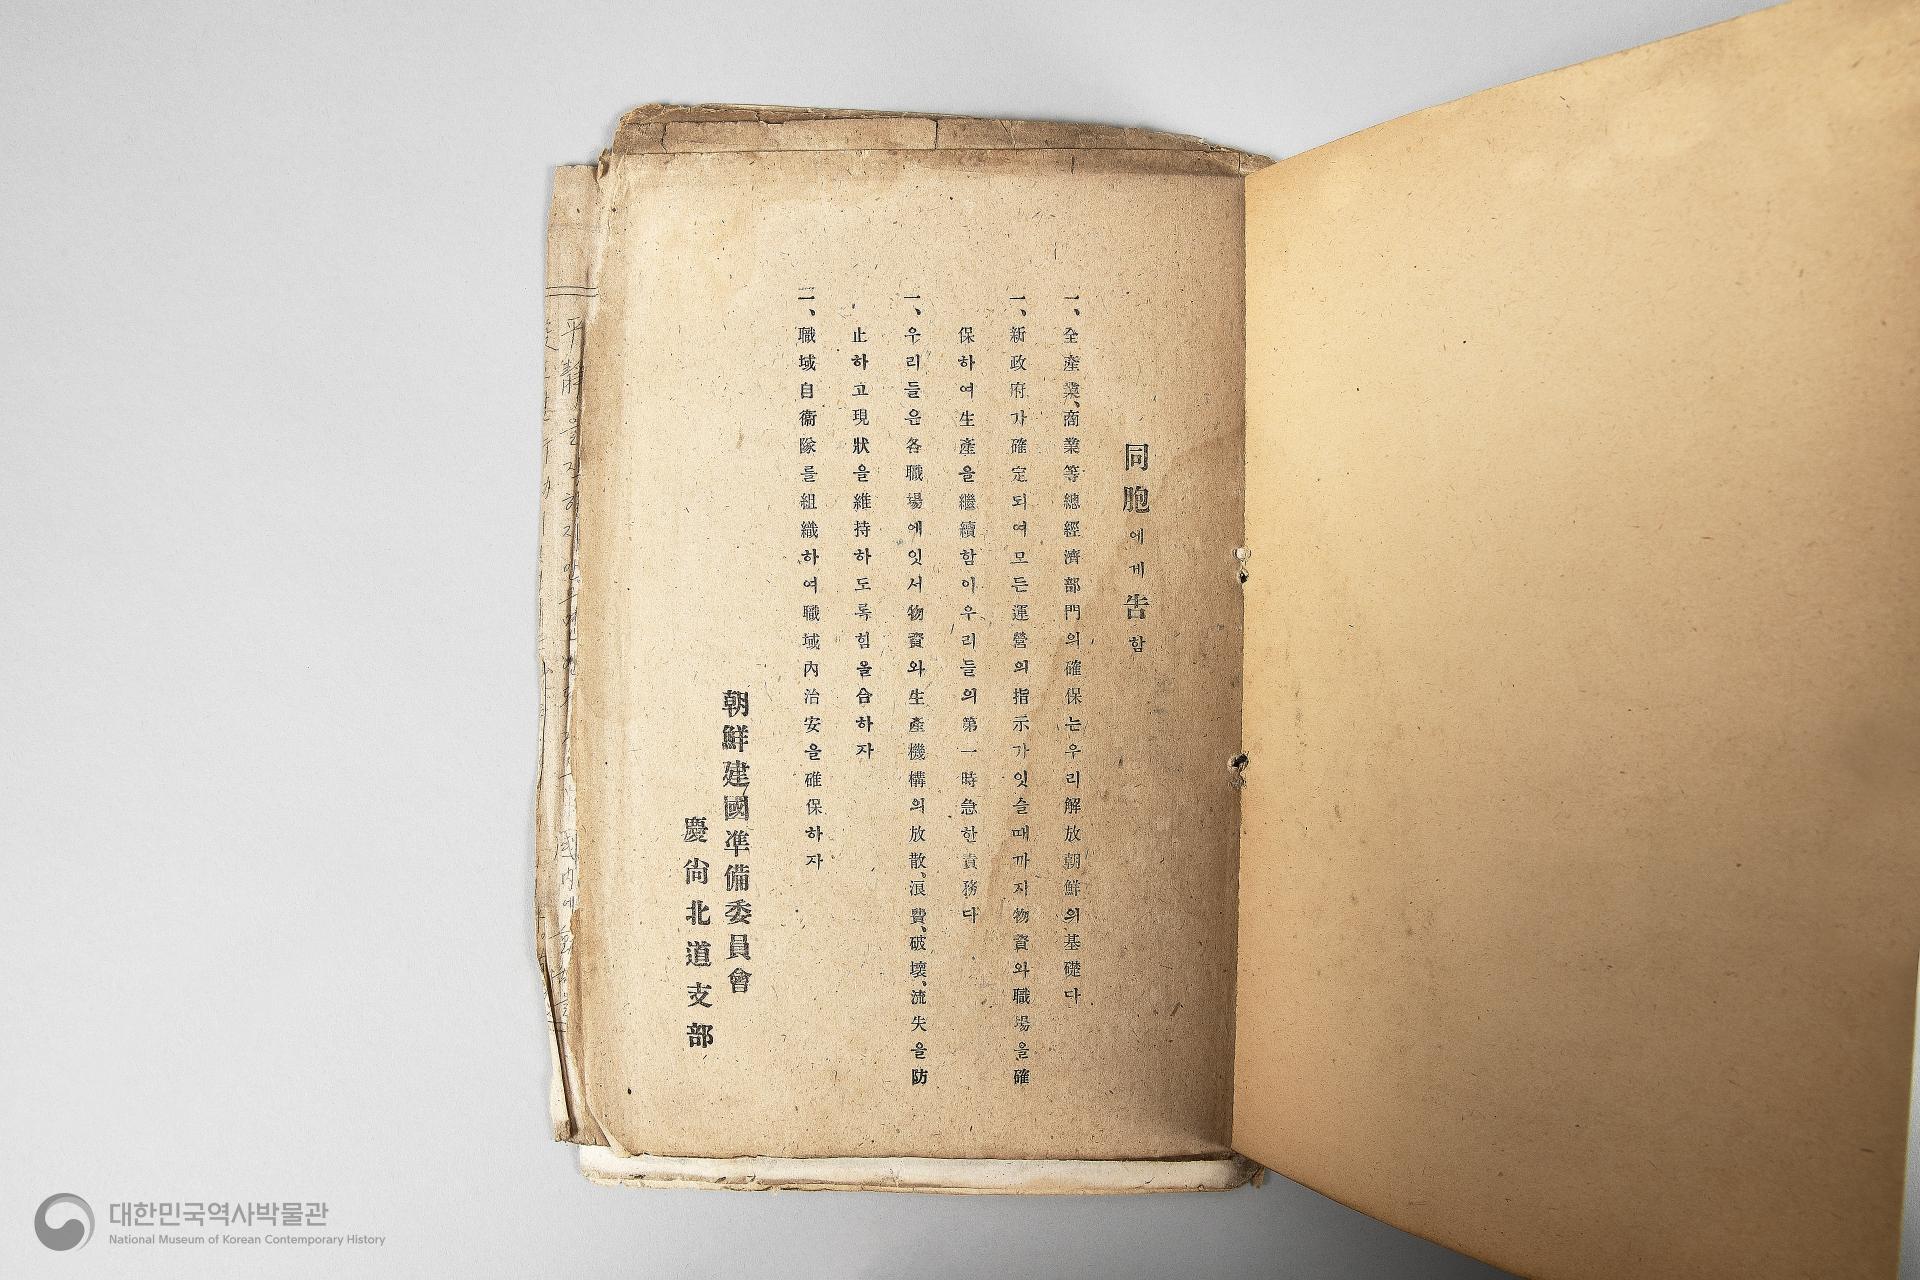 同胞에게告함
一、全產業、商業等總經濟部門의確保는우리解放朝鮮의基礎다
一、新政府가確定되여모든運營의指示가잇슬때까지物資와職場을確
保하여生產을繼續함이우리들의第一時急한責務다
一、우리들은各職場에잇서物資와生產機構의放散、浪費、破壞、流失을防
止하고現狀을維持하도록힘을合하자
二、職域自衞隊를組織하여職域內治安을確保하자
朝鮮建國準備委員會
慶尙北道支部
國內에
대한민국역사박물관
National Museum of Korean Contemporary History